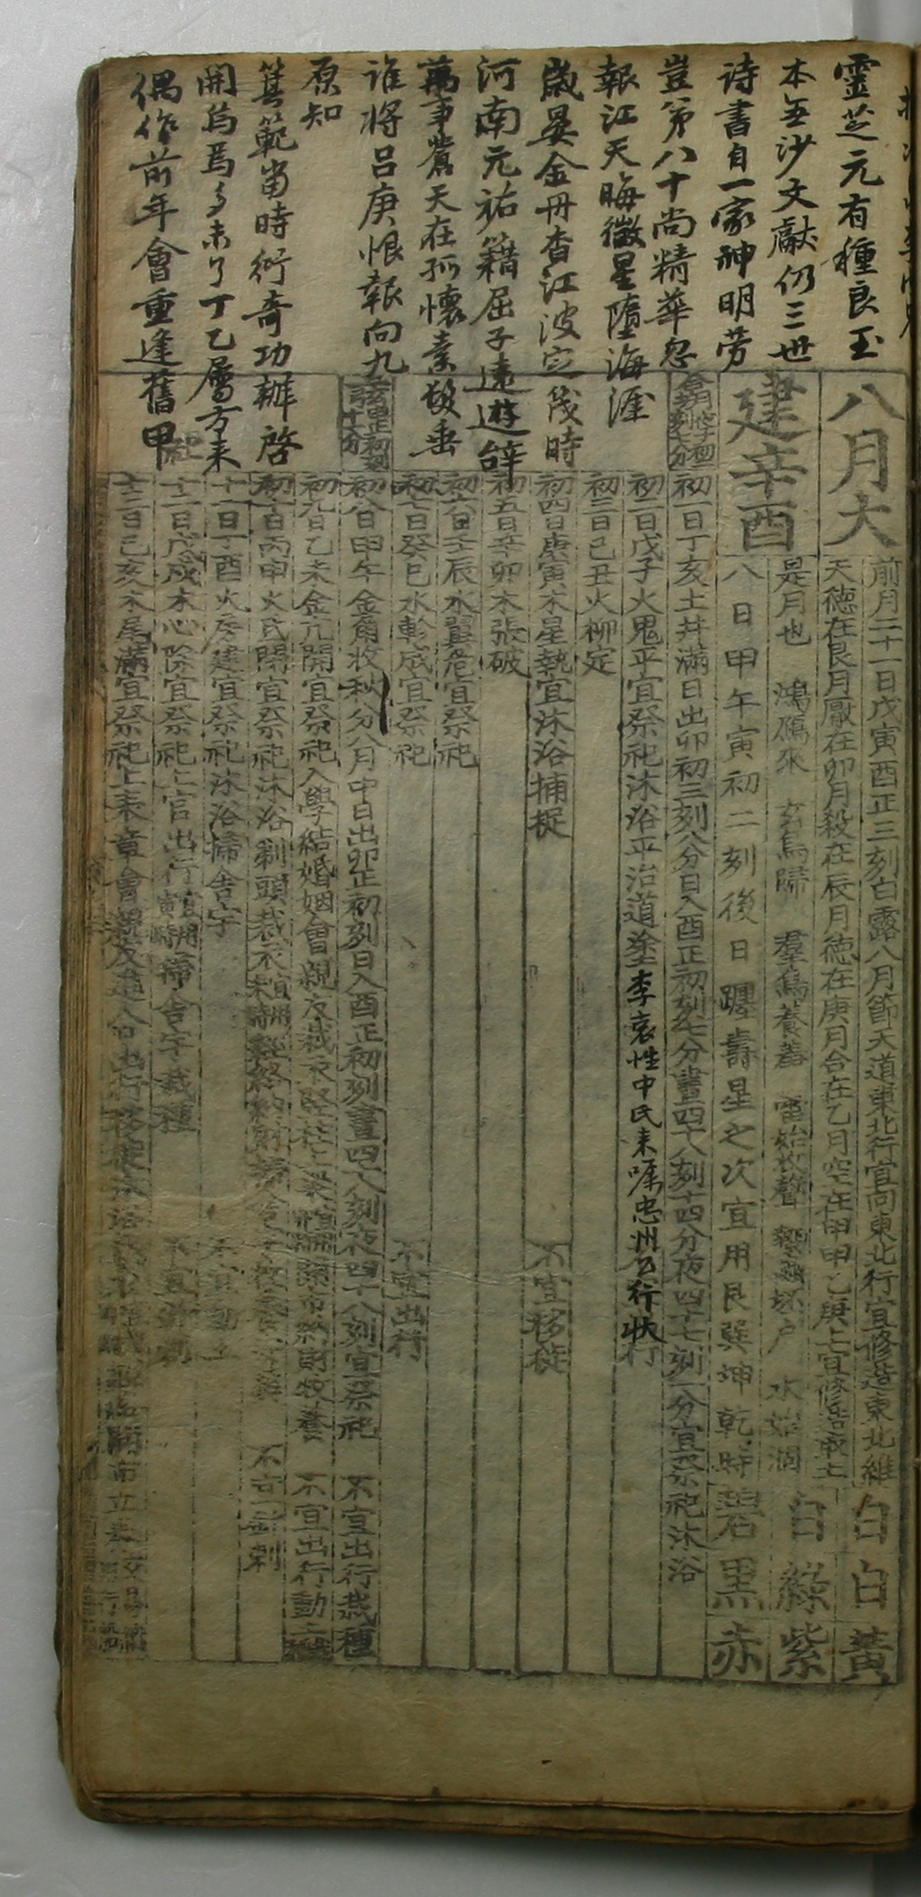 靈芝元有種良玉
本無沙文獻仍三世
詩書自一家神明勞
豈第八十尚精華忽
報江天晦微星墮海涯
歲晏金丹杳江波定幾時
河南元祐籍屈子遠遊辭
萬事蒼天在孤懷素髮垂
誰將呂庚恨報向九
原知
箕範當時衍奇功辨啓
開爲焉多未了丁乙屬方來
偶作前年會重逢舊甲
八月大
建辛酉
前月二十一日戊寅酉正三刻白露八月節天道東北行宜向東北行宜修造東北維
天德在艮月厭在卯月殺在辰月德在庚月合在乙月空在甲甲乙庚上宜修造取土
是月也 鴻鴈來 玄鳥歸 羣鳥養羞 雷始收聲 蟄蟲坏戶 水始涸
八日甲午寅初二刻後日躔壽星之次宜用艮巽坤乾時
白白黃
白綠紫
碧黑赤
初一日丁亥土井滿日出卯初三刻八分日入酉正初刻七分晝四十八刻十四分夜四十七刻一分宜祭祀沐浴
初二日戊子火鬼平宜祭祀沐浴平治道塗 李哀性中氏來囑忠州公行狀
初三日己丑火柳定
初四日庚寅木星執宜沐浴捕捉 不宜移徙
初五日辛卯木張破
初六日壬辰水翼危宜祭祀
初七日癸巳水軫成宜祭祀 不宜出行
初八日甲午金角收秋分八月中日出卯正初刻日入酉正初刻晝四十八刻夜四十八刻宜祭祀 不宜出行栽種
初九日乙未金亢開宜祭祀入學結婚姻會親友裁衣豎柱上梁 開市納財牧養 不宜出行動土
初十日丙申火氐閉宜祭祀沐浴剃頭裁衣 經絡 納財掃舍宇 不宜針刺
十一日丁酉火房建宜祭祀沐浴掃舍宇 不宜動土
十二日戊戌木心除宜祭祀上官出行 掃舍宇栽種 不宜針刺
十三日己亥木尾滿宜祭祀上表章會親友進人口出行移徙沐浴裁衣 開市立券交易